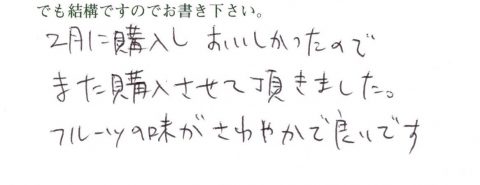 でも結構ですのでお書き下さい。
2月に購入し おいしかったので
また購入させて頂きました。
フルーツの味がさわやかで良いです